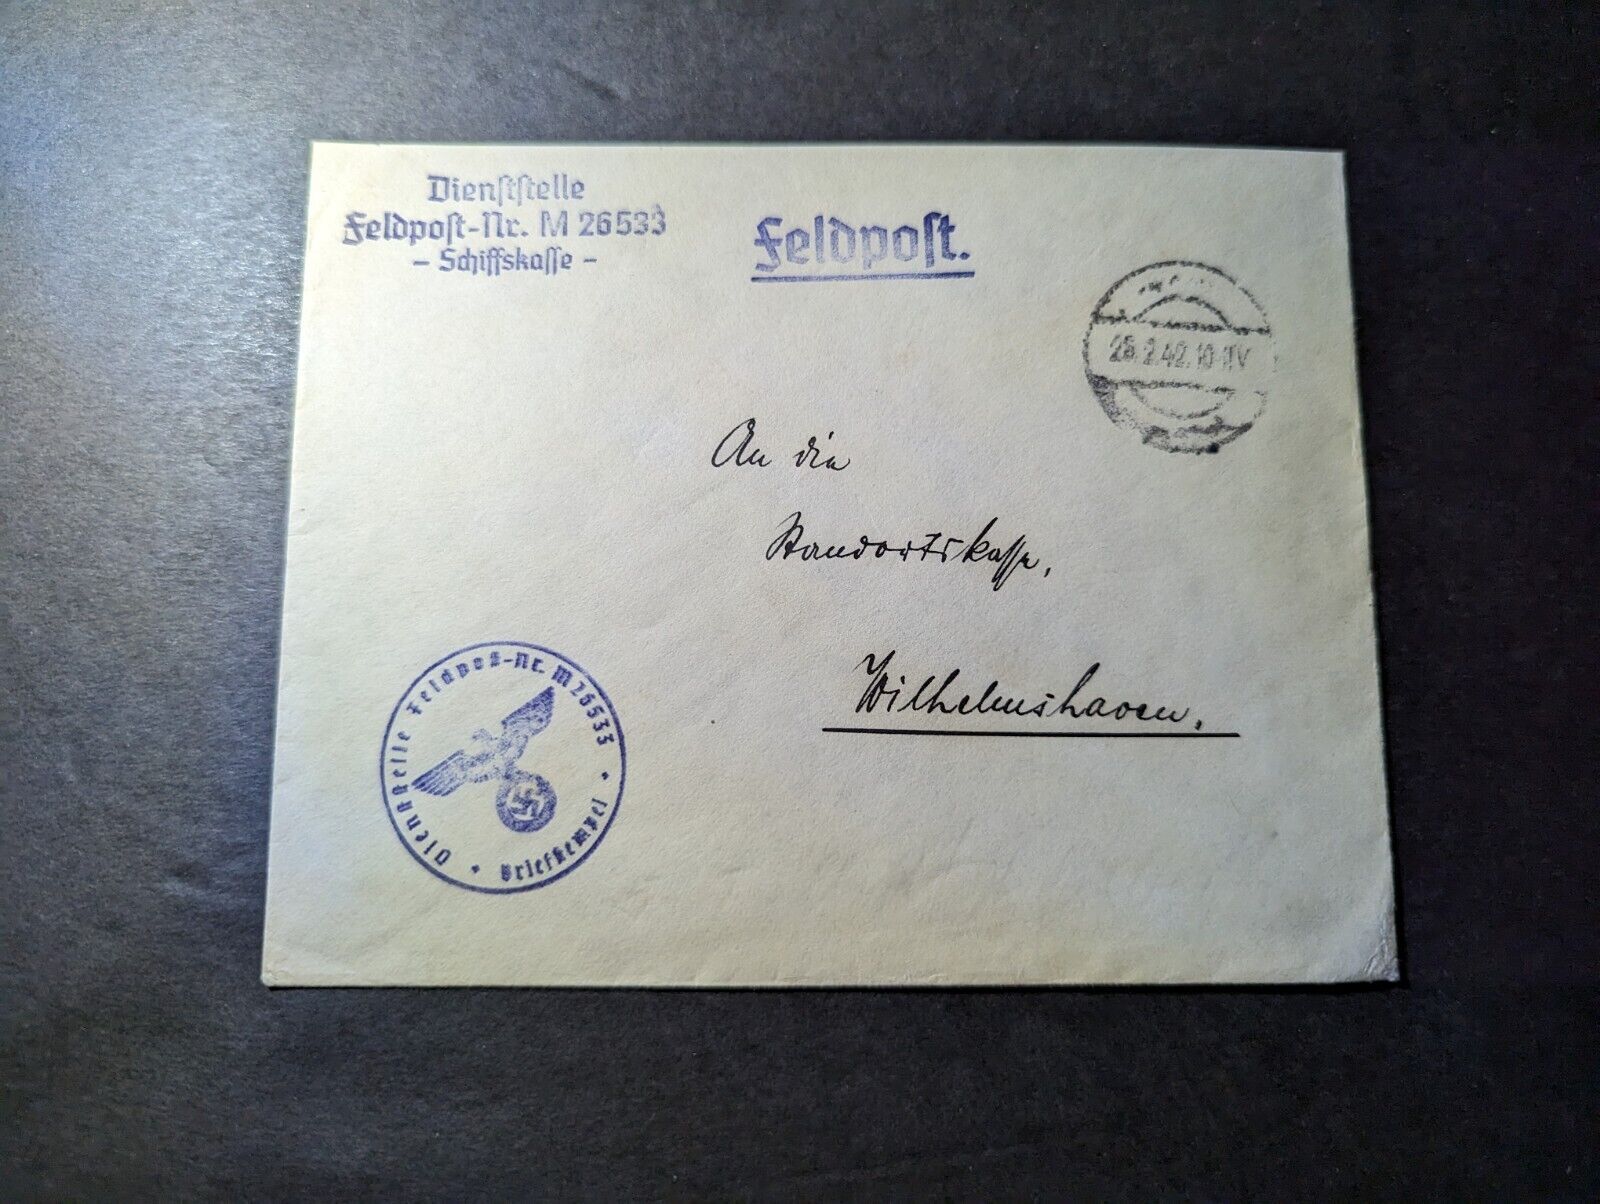 Dienststelle
Feldpost-Nr. M 26533
- Schiffskasse -
Feldpost.
26.2.42.10-11V
An die
Standortskasse,
Wilhelmshaven.
Dienststelle Feldpost-Nr. M 26533
* Briefstempel *